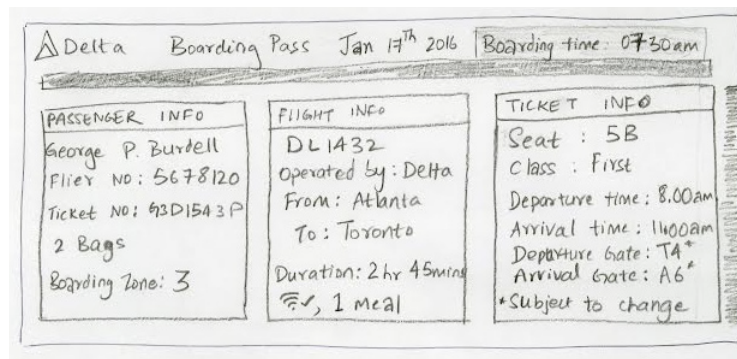 Delta Boarding Pass Jan 17th 2016 Boarding time: 0730am
PASSENGER INFO
George P. Burdell
Flier NO: 5678120
Ticket NO: G3D1543P
2 Bags
Boarding Zone: 3
FlIGHT INFO
DL1432
Operated by: Delta
From: Atlanta
To: Toronto
Duration: 2hr 45mins
, 1 meal
TICKET INFO
Seat : 5B
Class : First
Departure time: 8.00am
Arrival time: 11:00am
Departure Gate: T4*
Arrival Gate: A6*
*Subject to change